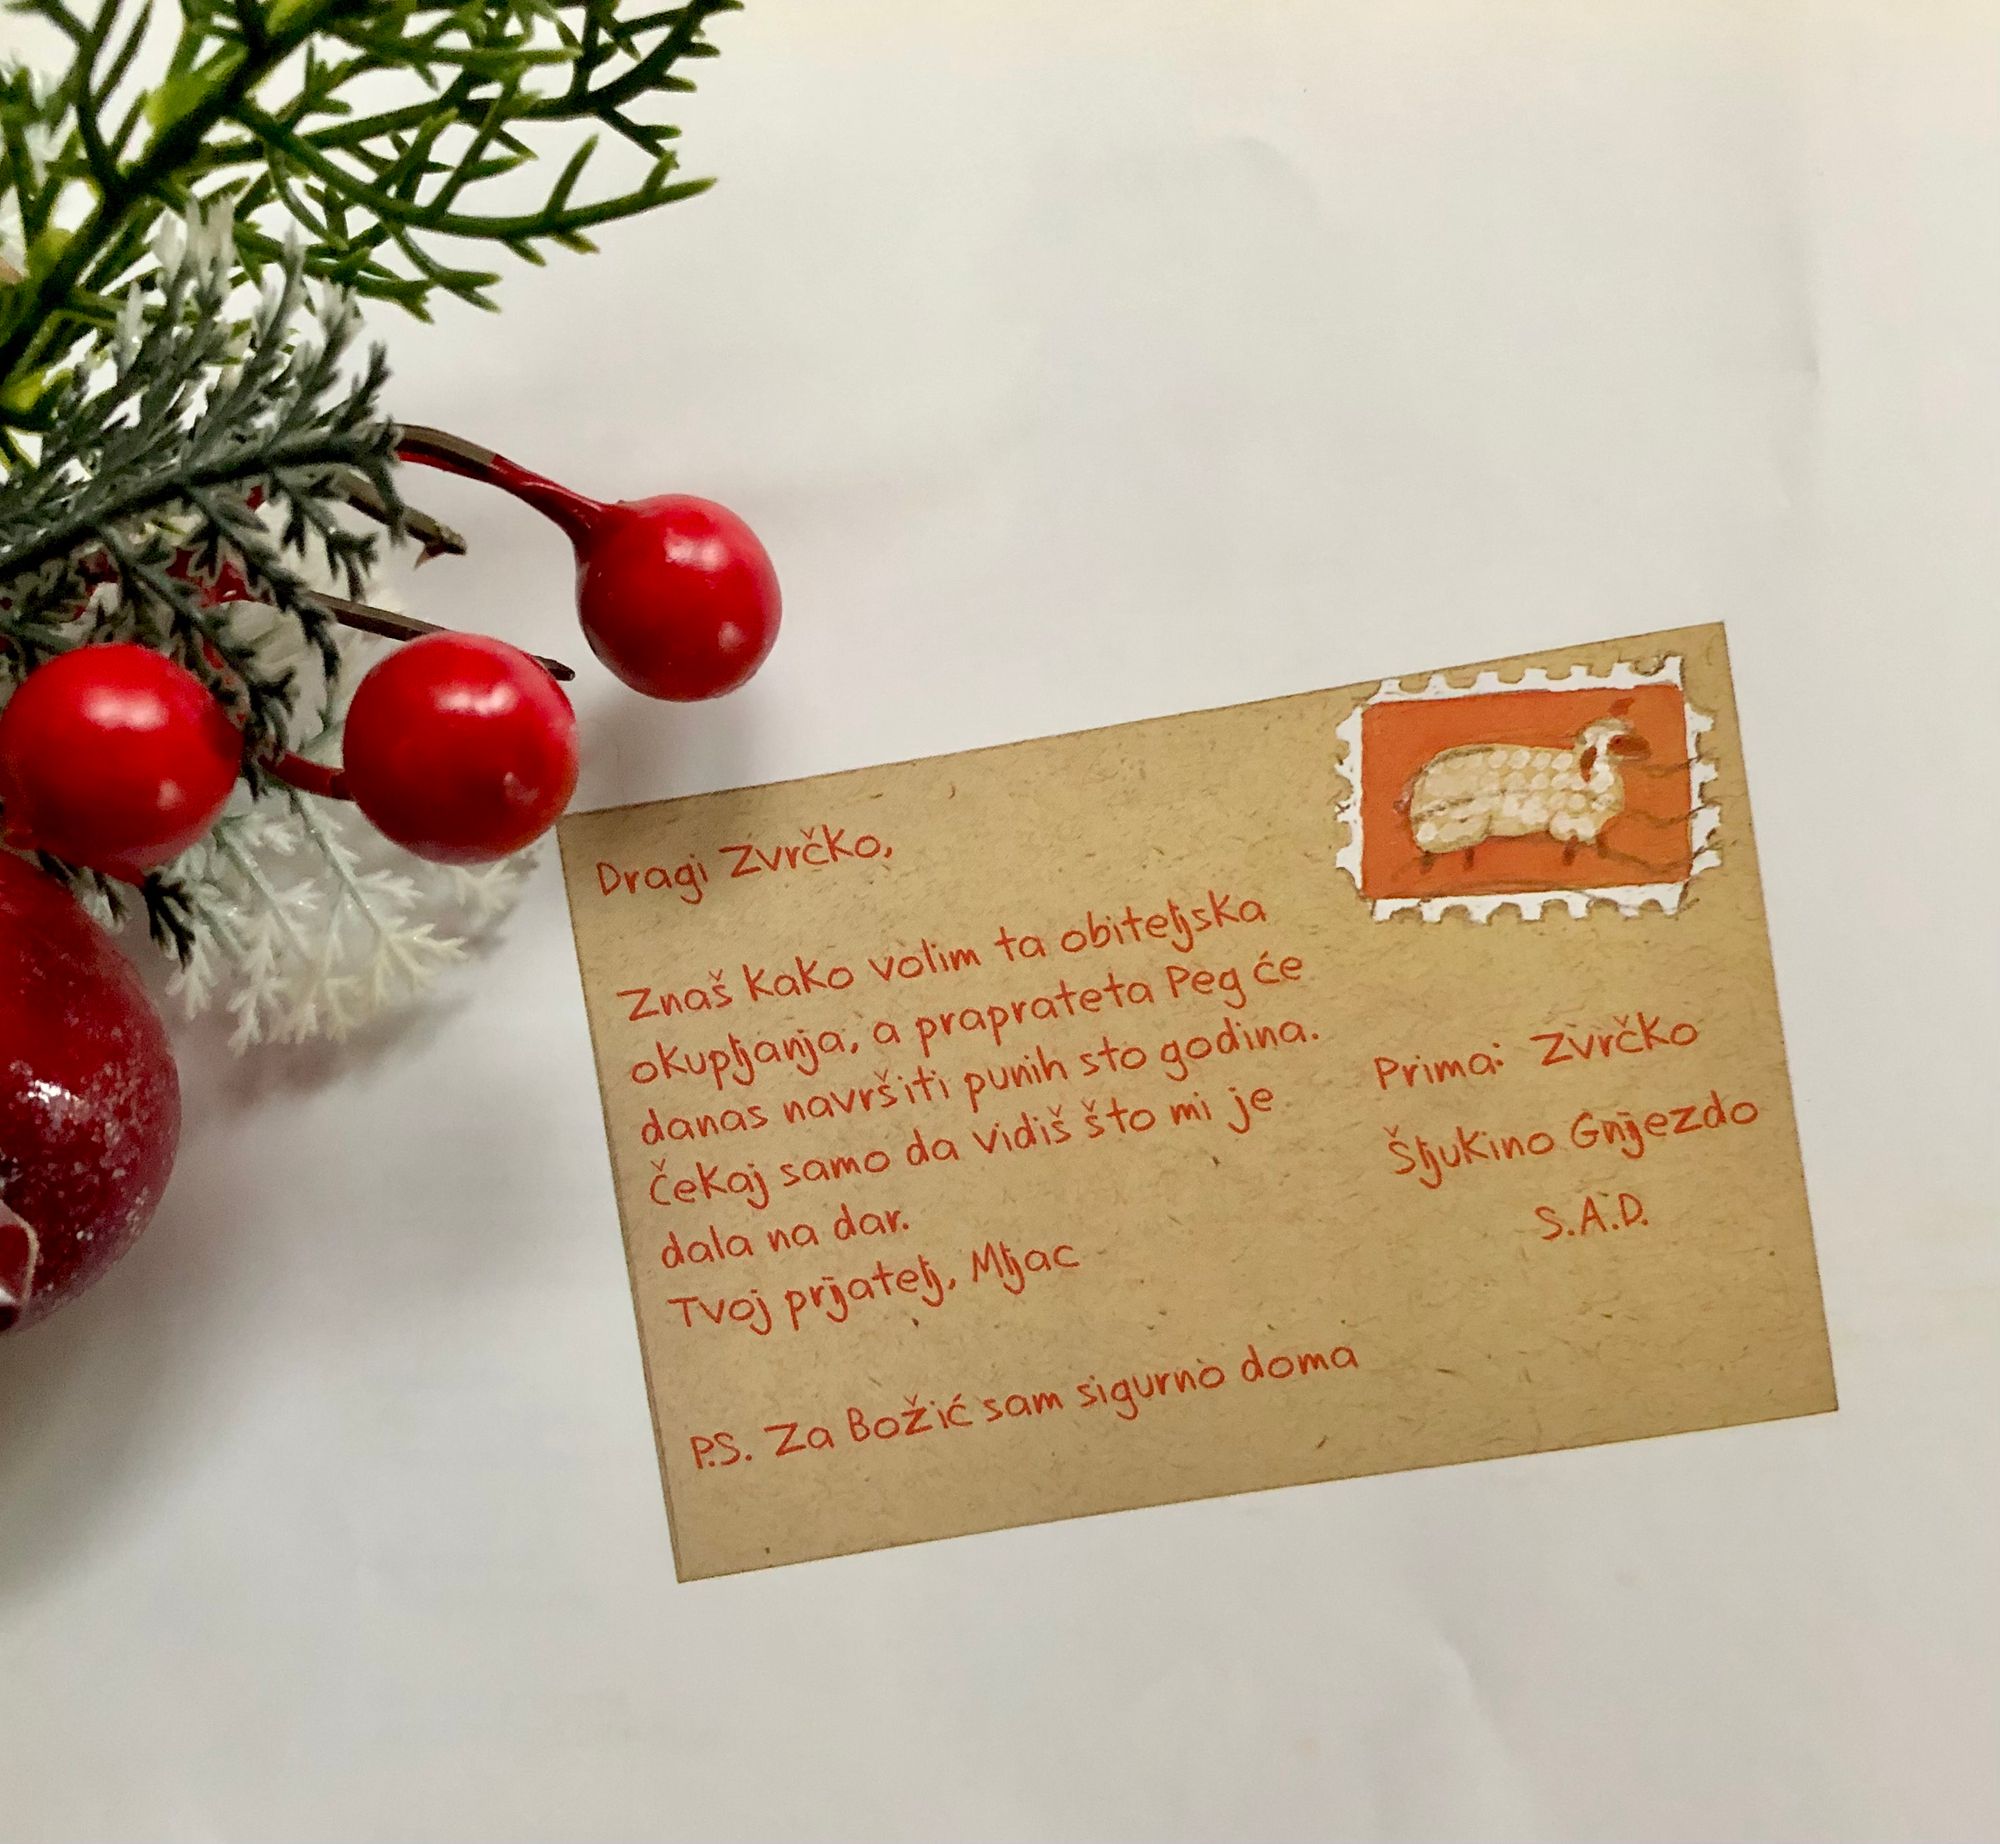 Dragi Zvrčko,
Znaš kako volim ta obiteljska
okupljanja, a praprateta Peg će
danas navršiti punih sto godina.
Čekaj samo da vidiš što mi je
dala na dar.
Tvoj prijatelj, Mljac
P.S. Za Božić sam sigurno doma
Prima: Zvrčko
Šljukino Gnijezdo
S.A.D.